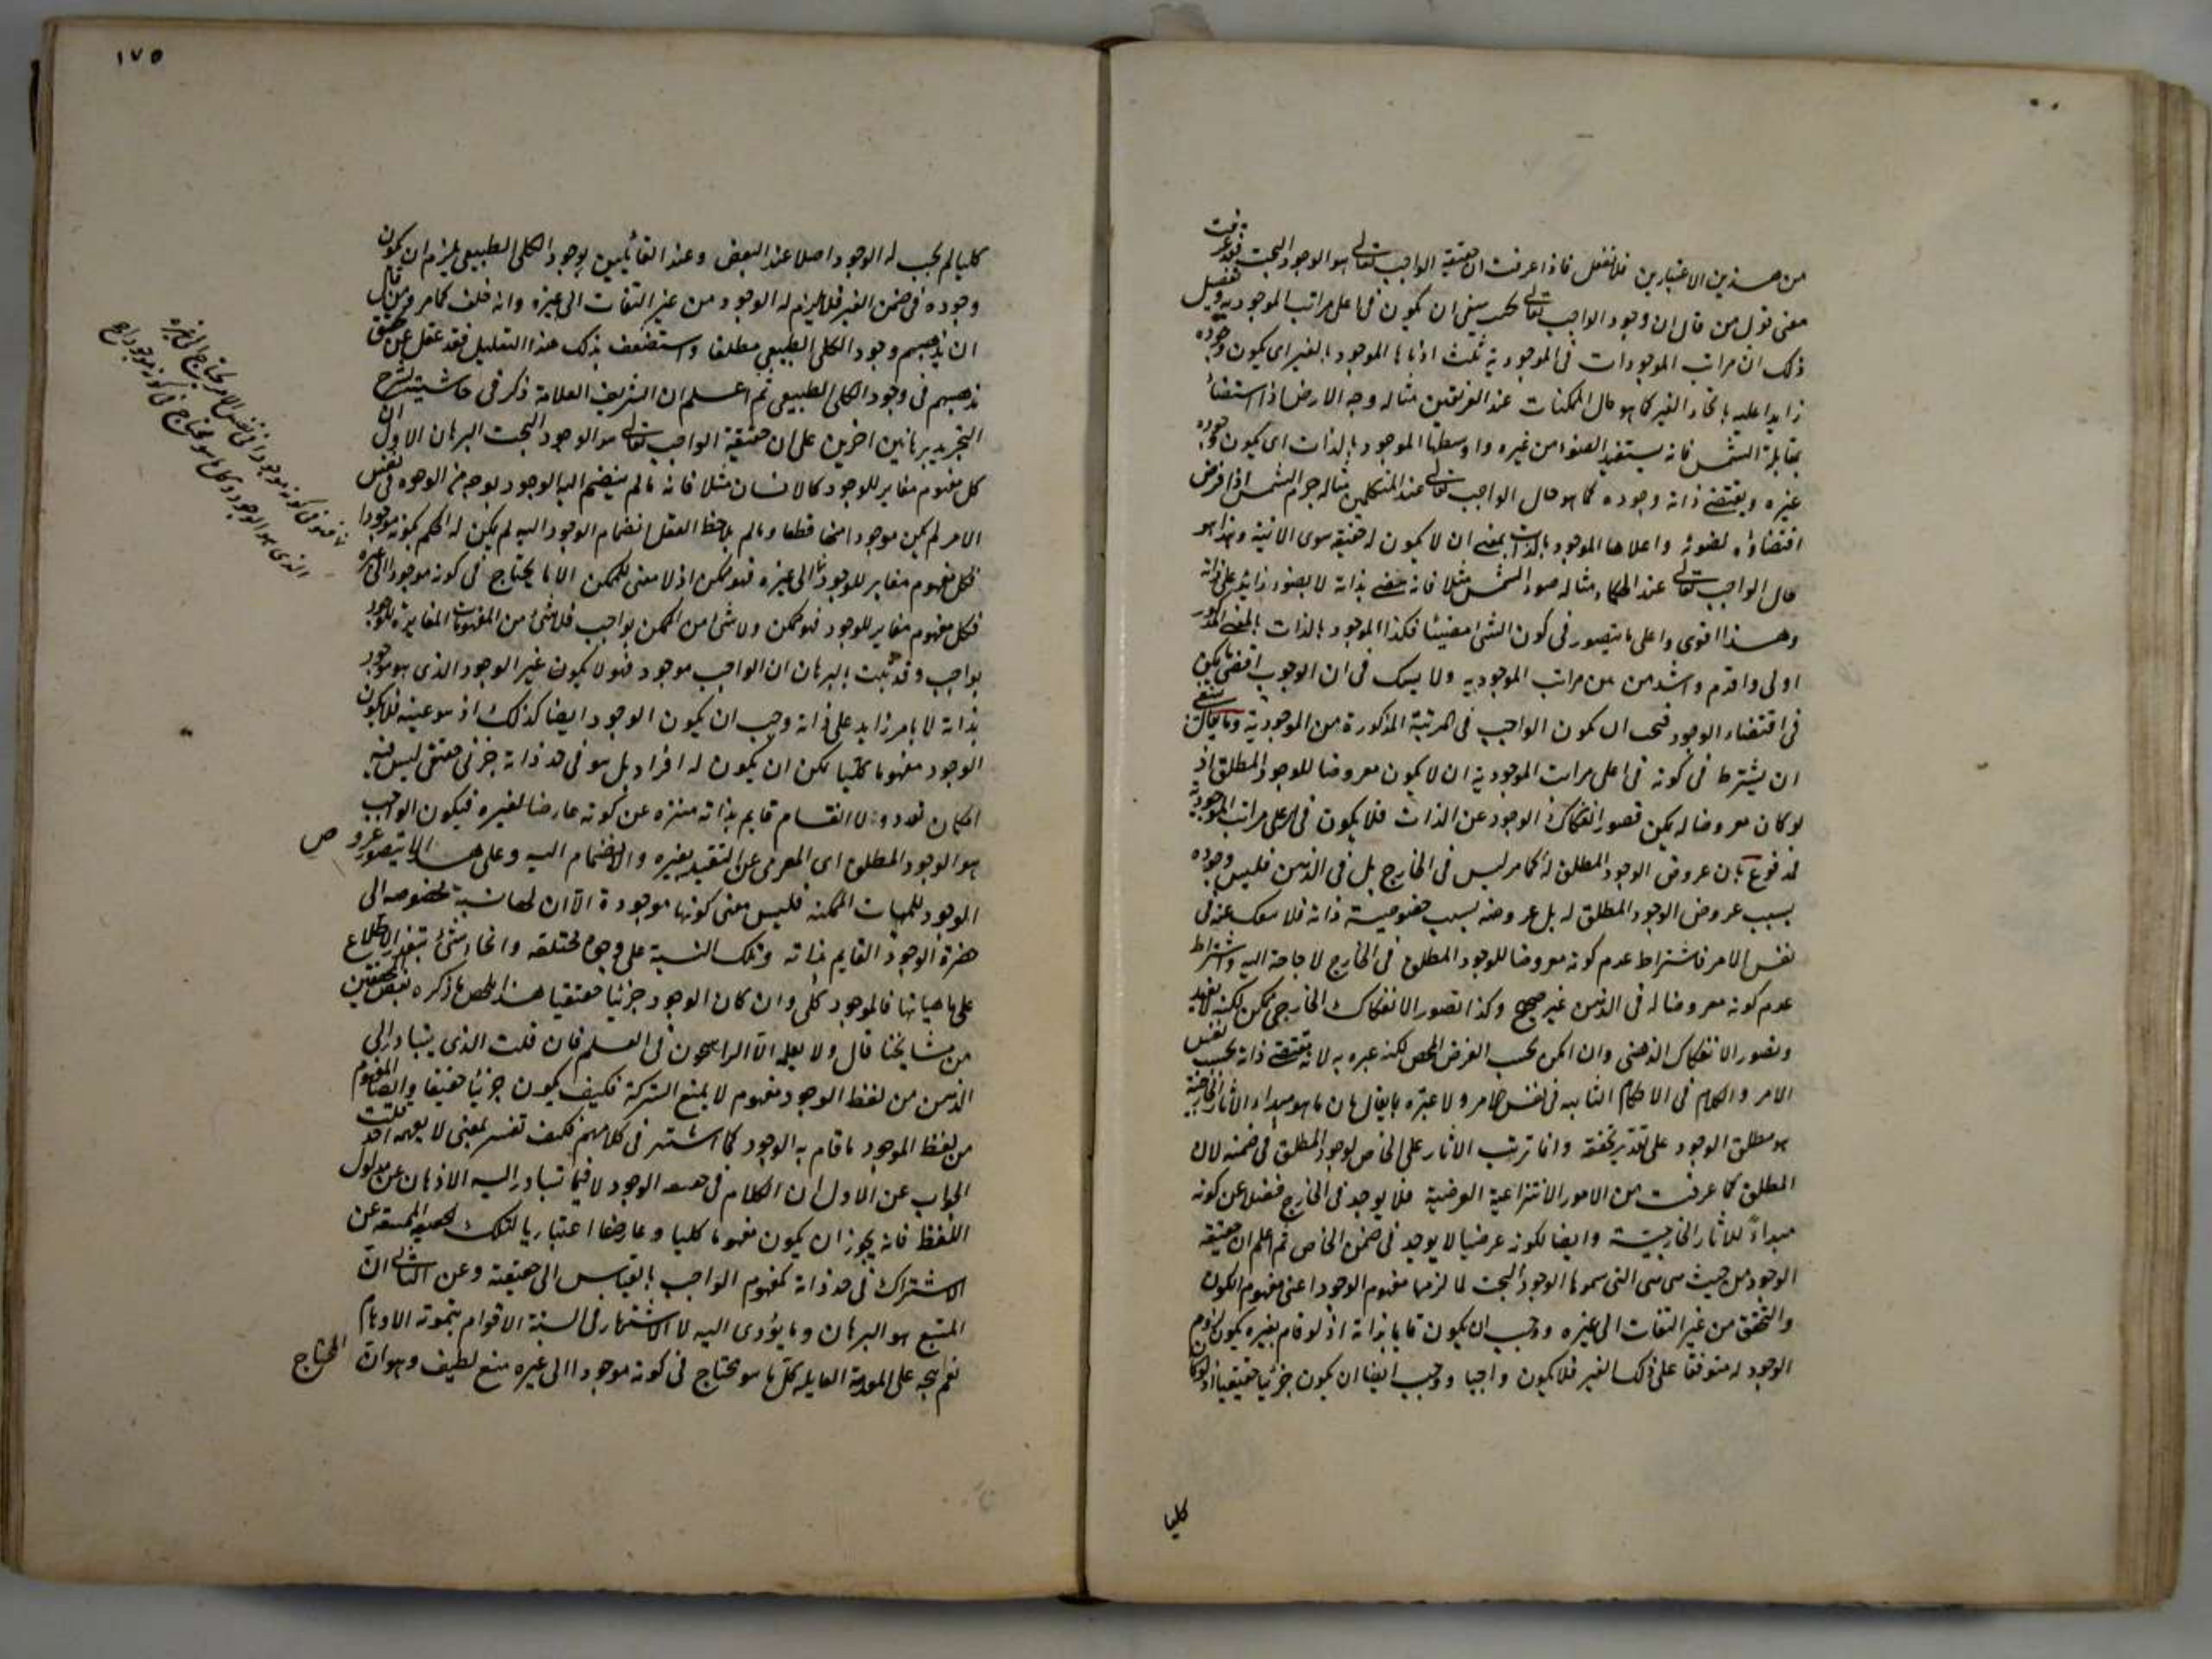 من هذين الاعتبارين فلا تغفل فاذا عرفت ان حقيقة الواجب تعالى هو الوجود البحت فقد عرفت
معنى قول من قال ان وجود الواجب تعالى يجب ينبغي ان يكون في اعلى مراتب الموجودية وتفصيل
ذلك ان مراتب الموجودات في الموجودية ثلث ادناها الموجود بالغير اي يكون وجوده
زايدا عليه بايجاد الغير كما هو حال الممكنات عند الفريقين مثاله وجه الارض اذا استضاء
بمقابلة الشمس فانه يستفيد الضوء من غيره واوسطها الموجود بالذات اي يكون وجوده
غيره ويقتضي ذاته وجوده كما هو حال الواجب تعالى عند المتكلمين مثاله جرم الشمس اذا فرض
اقتضاؤه لضوئه واعلاها الموجود بالذات بمعنى ان لا يكون له حقيقة سوى الانية وهذا هو
حال الواجب تعالى عند الحكماء مثاله ضوء الشمس مثلا فانه مضئ بذاته لا بضوء زايد على ذاته
وهذا اقوى واعلى ما يتصور في كون الشئ مضيئا فكذا الموجود بالذات بالمعنى المذكور
اولى واقدم واشد من من مراتب الموجودية ولا يشك في ان الوجوب اقصى ما يمكن
في اقتضاء الوجود فيجب ان يكون الواجب في المرتبة المذكورة من الموجودية وما يقال ينبغي
ان يشترط في كونه في اعلى مراتب الموجودية ان لا يكون معروضا للوجود المطلق اذ
لو كان معروضا له يمكن تصور انفكاك الوجود عن الذات فلا يكون في اعلى مراتب الموجودية
مدفوع بان عروض الوجود المطلق له كما مر ليس في الخارج بل في الذهن فليس وجوده
بسبب عروض الوجود المطلق له بل عروضه بسبب خصوصية ذاته فلا ينفك عنه في
نفس الامر فاشتراط عدم كونه معروضا للوجود المطلق في الخارج لا حاجة اليه واشتراط
عدم كونه معروضا له في الذهن غير صحيح وكذا تصور الانفكاك الخارجي ممكن لكنه لا يفيد
وتصور الانفكاك الذهني وان امكن بحسب الفرض المحض لكنه عبرة به لانه يقتضي ذاته بحسب نفس
الامر والكلام في الاحكام الثابتة في نفس الامر ولا عبرة بما يقال بان ما هو مبداء الاثار الخارجية
هو مطلق الوجود على تقدير تحققه وانما ترتب الاثار على الخاص لوجود المطلق في ضمنه لان
المطلق كما عرفت من الامور الانتزاعية العرضية فلا يوجد في الخارج فضلا عن كونه
مبداءً للاثار الخارجية وايضا لكونه عرضيا لا يوجد في ضمن الخاص ثم اعلم ان حقيقة
الوجود من حيث هي هي التي سموها الوجود البحت لما لزمها مفهوم الوجود اعني مفهوم الكون
والتحقق من غير التفات الى غيره وجب ان يكون قايما بذاته اذ لو قام بغيره يكون لزوم
الوجود له متوقفا على ذلك الغير فلا يكون واجبا ووجب ايضا ان يكون جزئيا حقيقيا اذ لو كان
كليا
١٧٥
كليا لم يجب له الوجود اصلا عند البعض وعند القائلين بوجود الكلي الطبيعي يلزم ان يكون
وجوده في ضمن الغير فلا يلزم له الوجود من غير التفات الى غيره وانه خلف كما مر ومن قال
ان مذهبهم وجود الكلي الطبيعي مطلقا واستضعف بذلك هذا التعليل فقد غفل عن تحقق
مذهبهم في وجود الكلي الطبيعي ثم اعلم ان الشريف العلامة ذكر في حاشيته لشرح
التجريد برهانين اخرين على ان حقيقة الواجب تعالى هو الوجود البحت البرهان الاول ان
كل مفهوم مغاير للوجود كالانسان مثلا فانه ما لم ينضم اليه الوجود بوجه من الوجوه في نفس
الامر لم يكن موجودا فيها قطعا وما لم يلاحظ العقل انضمام الوجود اليه لم يكن له الحكم بكونه موجودا
فكل مفهوم مغاير للوجود الى غيره فهو ممكن اذ لا معنى للممكن الا ما يحتاج في كونه موجودا الى غيره
فكل مفهوم مغاير للوجود فهو ممكن ولا شئ من الممكن بواجب فلا شئ من المفهومات المغايرة للوجود
بواجب وقد ثبت بالبرهان ان الواجب موجود فهو لا يكون غير الوجود الذي هو موجود
بذاته لا بامر زايد على ذاته وجب ان يكون الوجود ايضا كذلك اذ هو عينه فلا يكون
الوجود مفهوما كليا يمكن ان يكون له افراد بل هو في حد ذاته جزئي حقيقي ليس فيه
امكان تعدد ولا انقسام قايم بذاته منزه عن كونه عارضا لغيره فيكون الواجب
هو الوجود المطلق اي المعرى عن التقيد بغيره والانضمام اليه وعلى هذا لا يتصور عروض
الوجود للمهيات الممكنة فليس معنى كونها موجودة الا ان لها نسبة مخصوصة الى
حضرة الوجود القايم بذاته وتلك النسبة على وجوه مختلفة وانحاء شتى يتعذر الاطلاع
على ماهياتها فالموجود كلي وان كان الوجود جزئيا حقيقيا هذا ملخص ما ذكره بعض المحققين
من مشايخنا قال ولا يعلمه الا الراسخون في العلم فان قلت الذي يتبادر الى
الذهن من لفظ الوجود مفهوم لا يمنع الشركة فكيف يكون جزئيا حقيقيا وايضا المفهوم
من لفظ الموجود ما قام به الوجود كما اشتهر في كلامهم فكيف تفسر بمعنى لا يفهمه احد قلت
الجواب عن الاول ان الكلام في حقيقة الوجود لا فيما تبادر اليه الاذهان عن مدلول
اللفظ فانه يجوز ان يكون مفهوما كليا وعارضا اعتباريا لتلك الحقيقة الممتنعة عن
الاشتراك في حد ذاته كمفهوم الواجب بالقياس الى حقيقته وعن الثاني ان
المتبع هو البرهان وما يؤدي اليه لا الاشتهار في السنة الاقوام بتموته الاوهام
نعم يتجه على المقدمة القايلة كل ما هو محتاج في كونه موجودا الى غيره منع لطيف وهو ان المحتاج
ما فهو في كونه موجودا في نفس الامر يحتاج الى غيره
الذي هو الوجود وكل ما هو محتاج في كونه موجودا ع